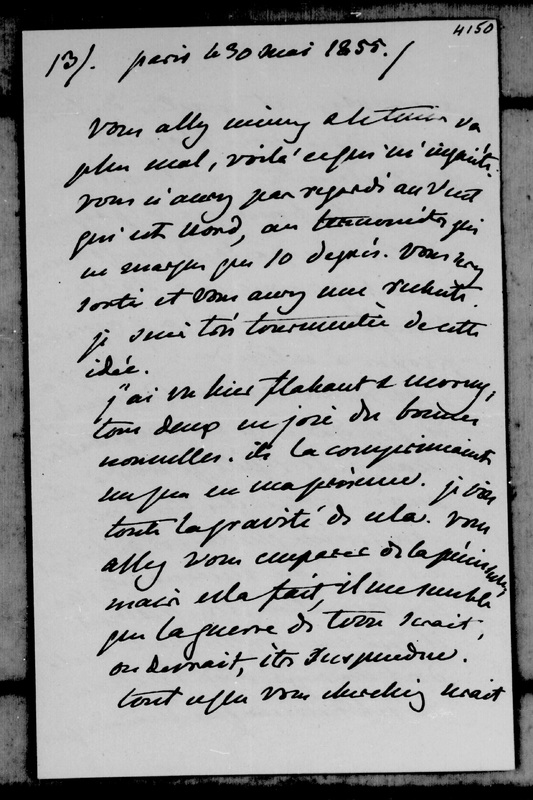 4150
13/. paris le 30 mai 1855./
vous allez mieux et le tems va
plus mal, voilà ce qui m'inquiète.
vous n'aurez pas regardé au vent
qui est nord, au thermomètre qui
ne marque que 10 degrés. vous serez
sorti et vous aurez une rechute.
je suis très tourmentée de cette
idée.
j'ai vu hier flahaut & morny,
tous deux en joie des bonnes
nouvelles. ils la comprimaient
un peu en ma présence. je vois
toute la gravité de cela. vous
allez vous emparer de la péninsule
mais cela fait, il me semble
que la guerre de terre serait,
ou devrait, être suspendue.
tout ce que vous cherchiez serait